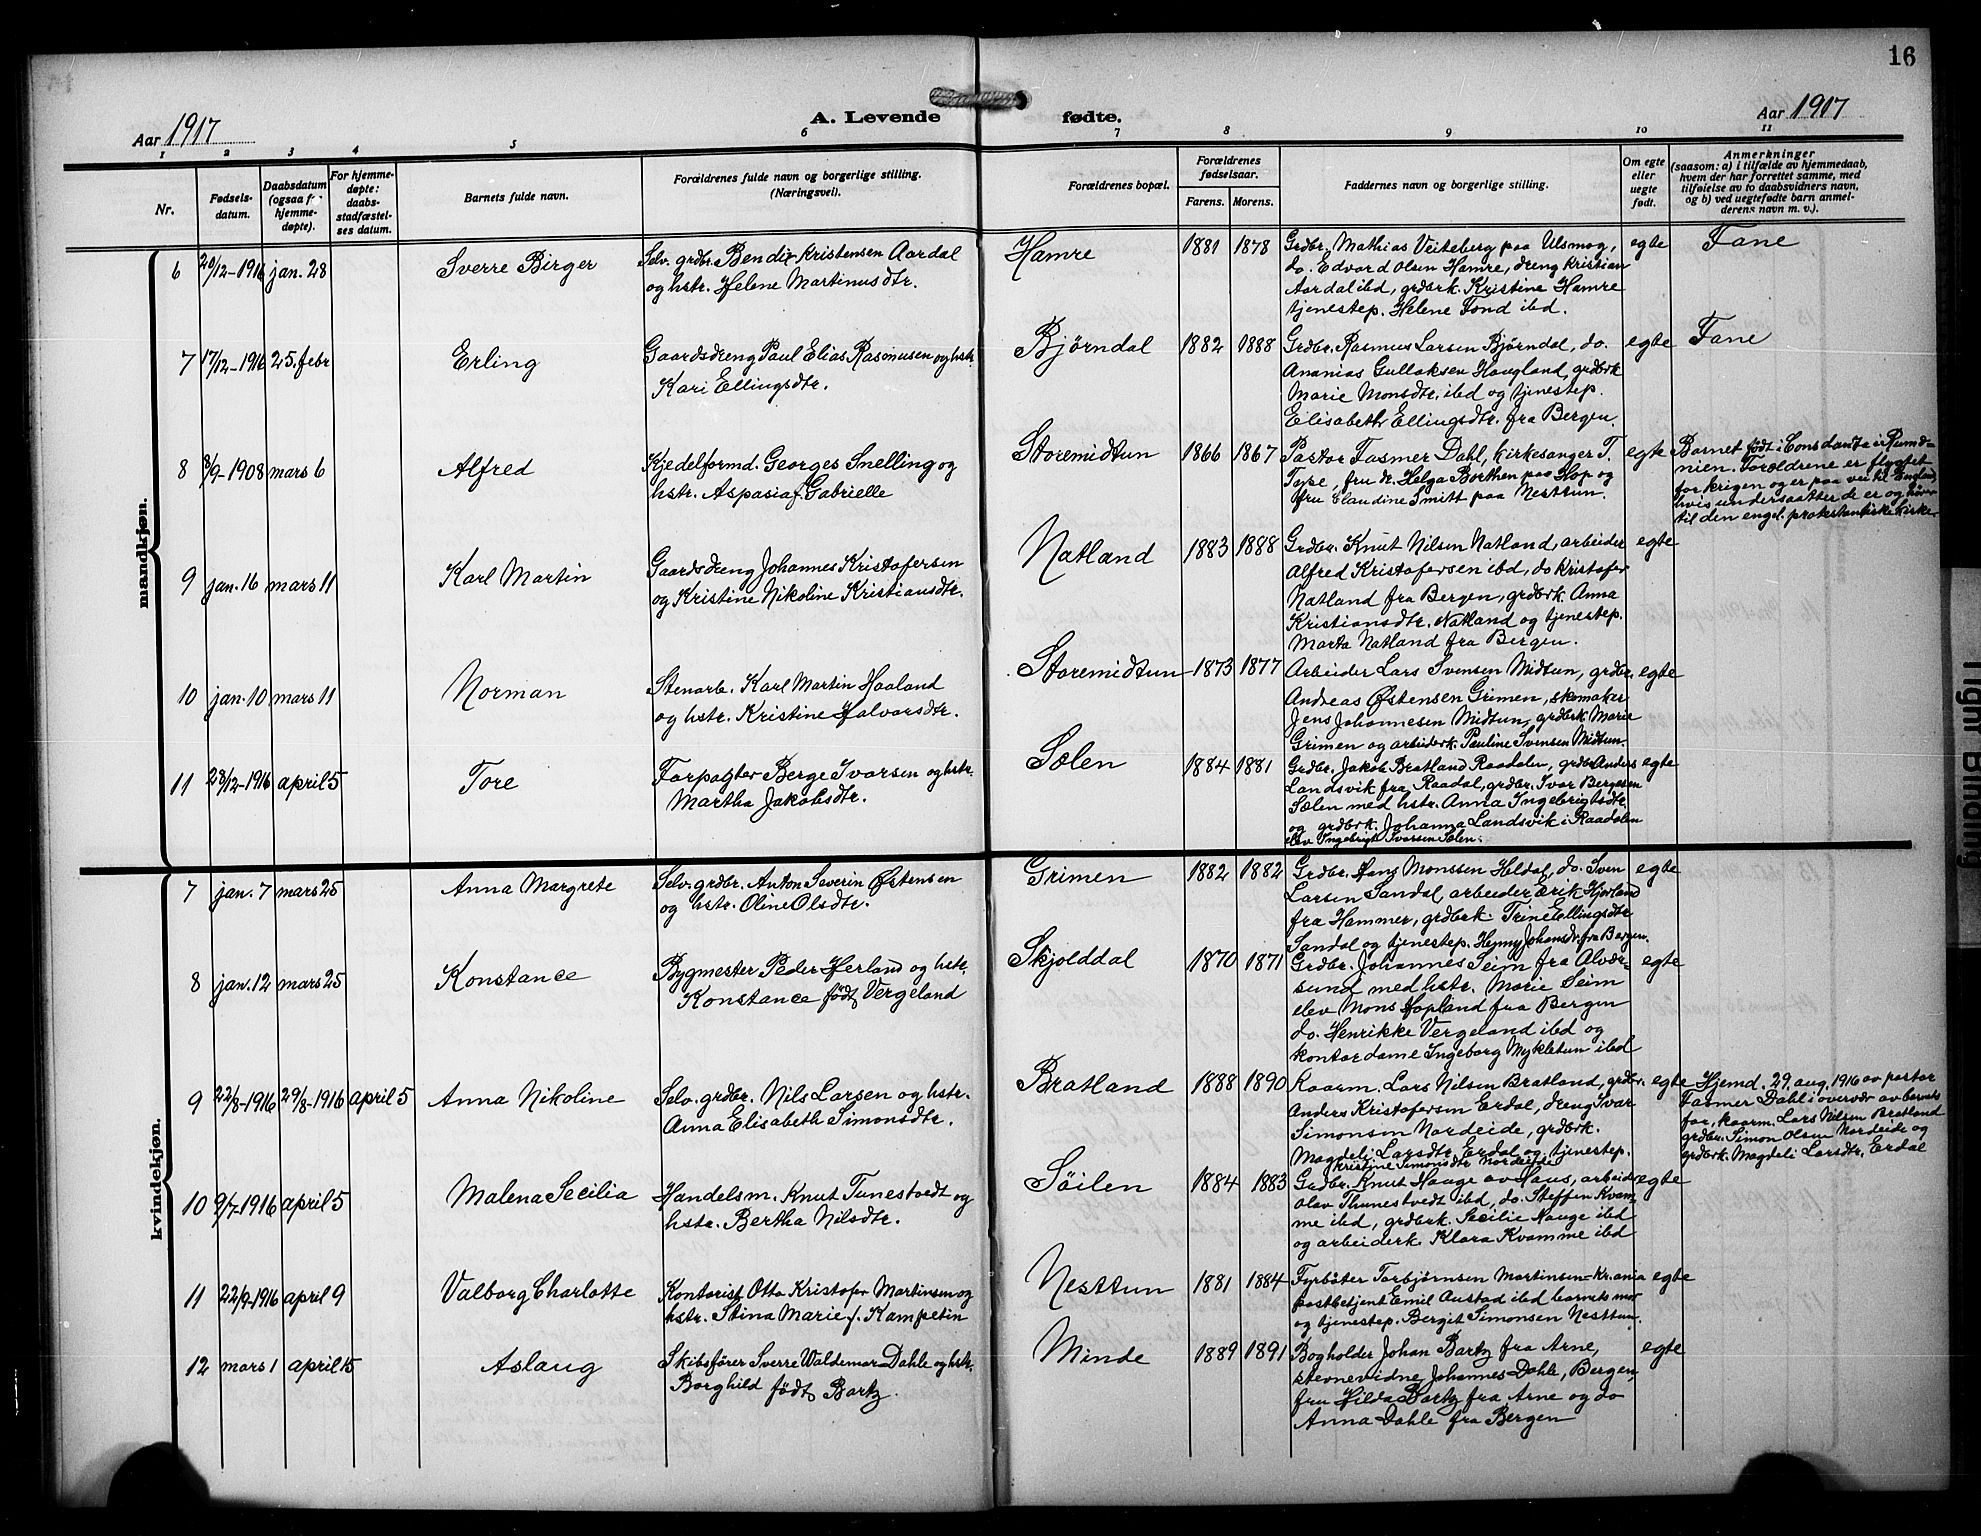 16
Aar 1917
A. Levende fødte.
Aar 1917
1 2 3 4 5 6 7 8 9 10 11
Nr.
Fødsels-
datum.
Daabsdatum
(ogsaa for
hjemme-
døpte).
For hjemme-
døpte:
daabs-
stadfæstel-
ses datum.
Barnets fulde navn.
Forældrenes fulde navn og borgerlige stilling.
(Næringsvei).
Forældrenes bopæl.
Forældrenes
fødselsaar.
Farens. Morens.
Faddernes navn og borgerlige stilling.
Om egte
eller
uegte
født.
Anmerkninger
(saasom: a) i tilfælde av hjemmedaab,
hvem der har forrettet samme, med
tilføielse av to daabsvidners navn,
og b) ved uegtefødte barn anmel-
derens navn m. v.).
mandkjøn.
6 20/12-1916 jan. 28 Sverre Birger
Selv. grdbr. Bendix Kristensen Aardal
og hstr. Helene Martinusdtr.
Hamre 1881 1878
Grdbr. Mathias Veiteberg paa Ulsmog,
do. Edvard Olsen Hamre, dreng Kristian
Aardal ibd, grdbrk. Kristine Hamre
tjenestep. Helene Tond ibd.
egte Fane
7 17/12-1916 25. febr Erling
Gaardsdreng Paul Elias Rasmusen og hstr.
Kari Ellingsdtr.
Bjørndal 1882 1888
Grdbr. Rasmus Larsen Bjørndal, do.
Ananias Gullaksen Haugland, grdbrk
Marie Monsdtr. ibd og tjenestep.
Elisabeth Ellingsdtr. fra Bergen.
egte Fane
8 8/9-1908 mars 6 Alfred
Kjedelformd. Georges Snelling og
hstr. Aspasia f. Gabrielle
Storemidtun 1866 1867
Pastor Fasmer Dahl, kirkesanger T.
Type, fru dr. Helga Borthen paa Hop og
fru Claudine Smitt paa Nesttun.
egte
Barnet født i Constanta i Rumæ-
nien. Forældrene er flygtet
for krigen og er paa vei til England,
hvis undersaatter de er og hører
til den engel. protestantiske kirke.
9 jan. 16 mars 11 Karl Martin
Gaardsdreng Johannes Kristofersen
og Kristine Nikoline Kristiansdtr.
Natland 1883 1888
Grdbr. Knut Nilsen Natland, arbeider
Alfred Kristofersen ibd, do Kristofer
Natland fra Bergen, grdbrk. Anna
Kristiansdtr. Natland og tjenestep.
Marta Natland fra Bergen.
egte
10 jan. 10 mars 11 Norman
Stenarb. Karl Martin Haaland
og hstr. Kristine Halvorsdtr.
Storemidtun 1873 1877
Arbeider Lars Svensen Midtun, grdbr.
Andreas Østensen Grimen, skomaker
Jens Johannesen Midtun, grdbrk. Marie
Grimen og arbeiderk. Pauline Svensen Midtun.
egte
11 28/12-1916 april 5 Tore
Forpagter Berge Ivarsen og hstr.
Martha Jakobsdtr.
Sælen 1884 1881
Grdbr. Jakob Bratland Raadalen, grdbr. Anders
Landsvik fra Raadal, grdbr. Ivar Bergesen
Sælen med hstr. Anna Ingebrigtsdtr.
og grdbrk. Johanna Landsvik i Raadalen
elev Ingebrigt Ivarsen Sælen.
egte
kvindekjøn.
7 jan. 7 mars 25 Anna Margrete
Selv. grdbr. Anton Severin Østensen
og hstr. Oline Olsdtr.
Grimen 1882 1882
Grdbr. Hans Monssen Heldal, do. Sven
Larsen Sandal, arbeider Erik Hjorland
fra Hammer, grdbrk. Trine Ellingsdtr
Sandal og tjenestep. Henny Johansdr. fra Bergen.
egte
8 jan. 12 mars 25 Konstance
Bygmester Peder Herland og hstr.
Konstance født Vergeland
Skjolddal 1870 1871
Grdbr. Johannes Seim fra Alvær-
sund med hstr. Marie Seim
elev Mons Hopland fra Bergen
do. Henrikke Vergeland ibd og
kontordame Ingeborg Mykletun ibd
egte
9 22/8-1916 29/8-1916 april 5 Anna Nikoline
Selv. grdbr. Nils Larsen og hstr.
Anna Elisabeth Simonsdtr.
Bratland 1888 1890
Kaarm. Lars Nilsen Bratland, grdbr.
Anders Kristofersen Erdal, dreng Ivar
Simonsen Nordeide, grdbrk.
Magdeli Larsdtr. Erdal og tjenestep.
Kristine Simonsdtr Nordeide
egte
Hjemd. 29. aug. 1916 av pastor
Fasmer Dahl i overvær av barnets
far, kaarm. Lars Nilsen Bratland
grdbr. Simon Olsen Nordeide og
grdbrk. Magdeli Larsdtr. Erdal
10 9/7-1916 april 5 Malena Secilia
Handelsm. Knut Tunestvedt og
hstr. Bertha Nilsdtr.
Søilen 1884 1883
Grdbr. Knut Hauge av Haus, arbeider
Olav Thunestvedt ibd, do. Steffen Kvam-
me ibd, grdbrk. Secilie Hauge ibd
og arbeiderk. Klara Kvamme ibd
egte
11 22/9-1916 april 9 Valborg Charlotte
Kontorist Otto Kristofer Martinsen og
hstr. Stina Marie f. Kampetin
Nesttun 1881 1884
Fyrbøter Torbjørnsen Martinsen-Kr.ania
postbetjent Emil Austad ibd barnets mor
og tjenestep. Bergit Simonsen Nesttun.
egte
12 mars 1 april 15 Aslaug
Skibsfører Sverre Waldemar Dahle og hstr.
Borghild født Bartz.
Minde 1889 1891
Bogholder Johan Bartz fra Arne,
stevnevidne Johannes Dahle, Bergen,
fru Hilda Bartz fra Arne og do
Anna Dahle fra Bergen
egte
Tight Binding